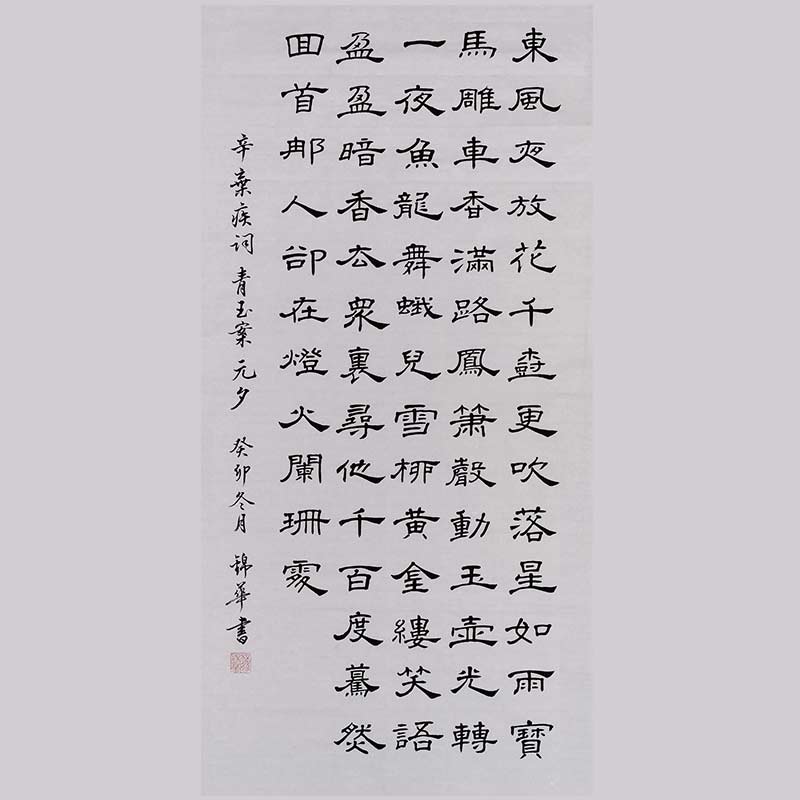 東風夜放花千樹更吹落星如雨寶
馬雕車香滿路鳳簫聲動玉壺光轉
一夜魚龍舞蛾兒雪柳黃金縷笑語
盈盈暗香去眾裏尋他千百度驀然
回首那人卻在燈火闌珊處
辛棄疾詞 青玉案 元夕 癸卯冬月 錦華書